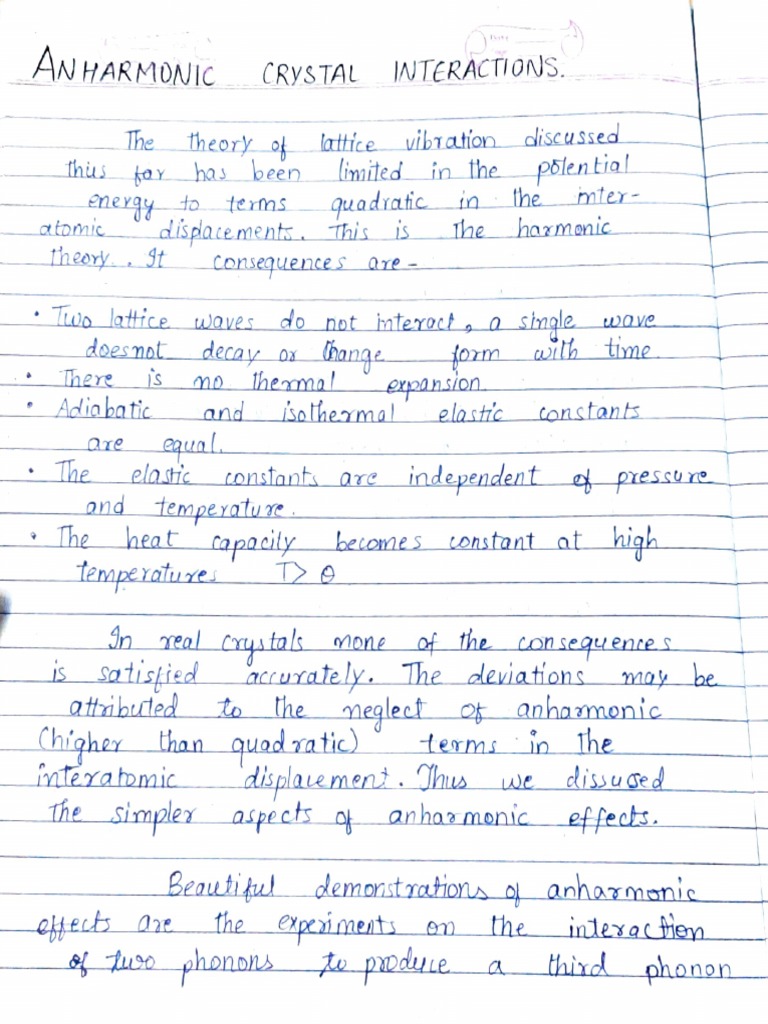 ANHARMONIC CRYSTAL INTERACTIONS.
The theory of lattice vibration discussed
thus far has been limited in the potential
energy to terms quadratic in the inter-
atomic displacements. This is the harmonic
theory. It consequences are -
• Two lattice waves do not interact, a single wave
doesnot decay or change form with time
• There is no thermal expansion.
• Adiabatic and isothermal elastic constants
are equal.
• The elastic constants are independent of pressure
and temperature.
• The heat capacity becomes constant at high
temperatures T> θ
In real crystals none of the consequences
is satisfied accurately. The deviations may be
attributed to the neglect of anharmonic
(higher than quadratic) terms in the
interatomic displacement. Thus we dissused
the simpler aspects of anharmonic effects.
Beautiful demonstrations of anharmonic
effects are the experiments on the interaction
of two phonons to produce a third phonon